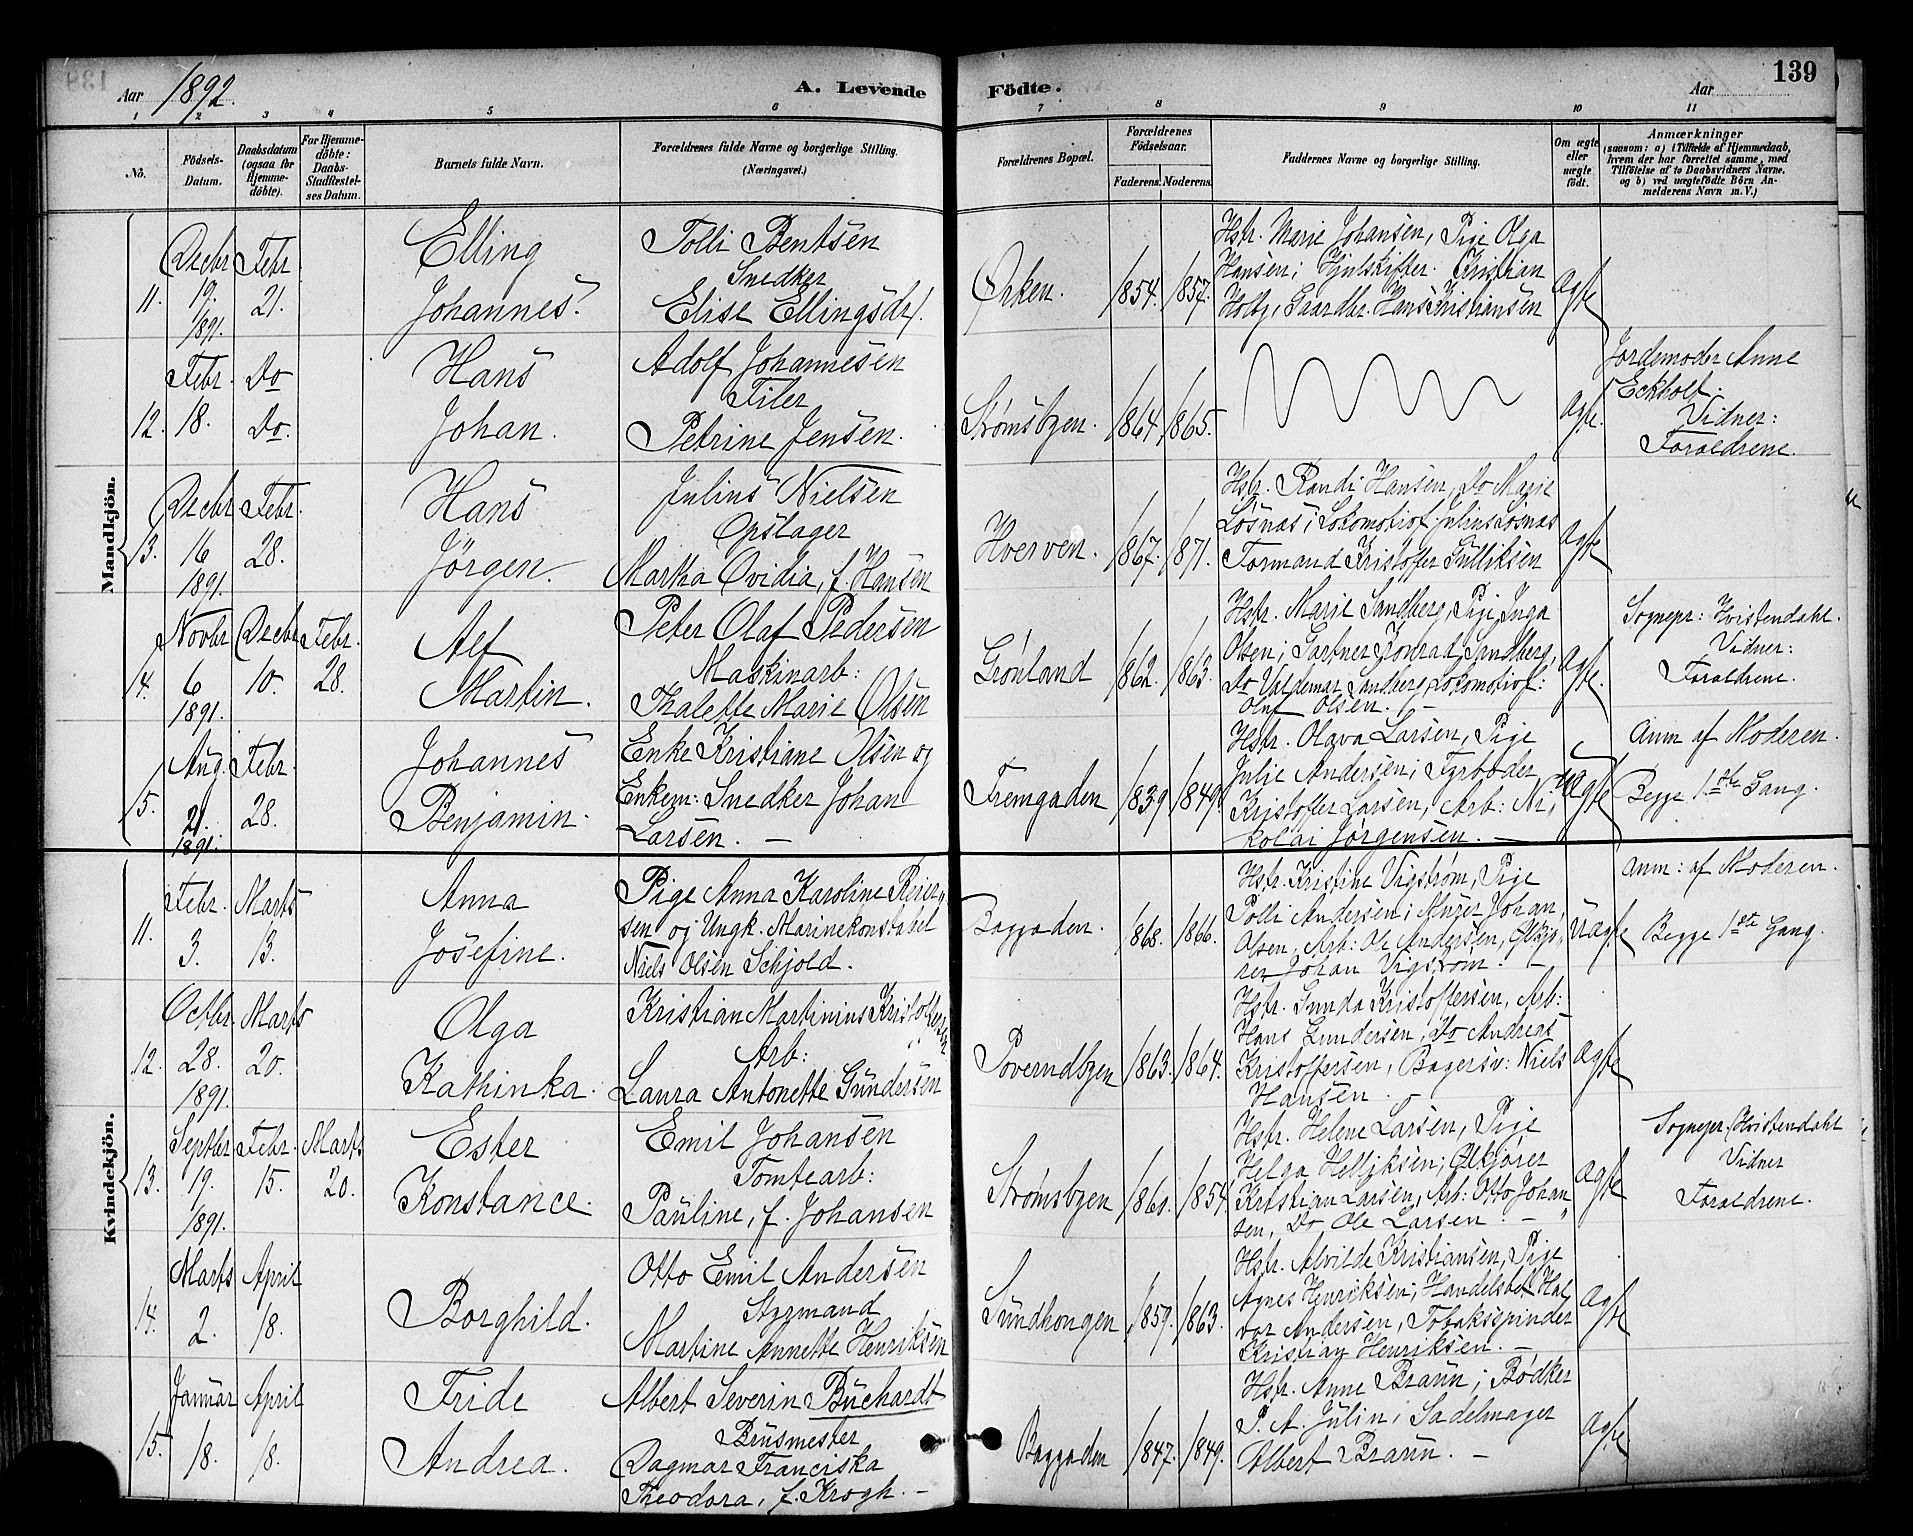 139
Aar 1892. A. Levende Födte. Aar
1 2 3 4 5 6 7 8 9 10 11
No. Födsels-Datum. Daabsdatum (ogsaa for Hjemmedöbte). For Hjemmedöbte: Daabs-Stadfæstelses Datum. Barnets fulde Navn. Forældrenes fulde Navne og borgerlige Stilling. (Næringsvei.) Forældrenes Bopæl. Forældrenes Födselsaar. Faderens. Moderens. Faddernes Navne og borgerlige Stilling. Om ægte eller uægte födt. Anmærkninger (saasom: a) i Tilfælde af Hjemmedaab, hvem der har forrettet samme, med Tilföielse af to Daabsvidners Navne, og b) ved uægtefödte Börn Anmelderens Navn m. V.)
Mandkjön.
11. Decbr 19. 1891. Febr. 21.
Elling
Johannes.
Tolli Bentsen
Snedker
Elise Ellingsdr.
Ørken. 1854. 1857.
Hstr. Marie Johansen, Pige Olga
Hansen; Hjulskifter Kristian
Holby, Gaardbr. Hans Kristiansen
Ægte
12. Febr. 18. Do Do.
Hans
Johan.
Adolf Johannesen
Filer
Petrine Jensen.
Strømsbyen. 1864. 1865.
Ægte.
Jordemoder Anne
Eckholt.
Vidner:
Forældrene.
13. Decbr 16 1891. Febr. 28.
Hans
Jörgen.
Julius Nielsen
Opstager
Martha Ovidia, f. Hansen
Hverven. 1867. 1871.
Hstr. Randi Hansen, Do Marie
Løsnæs; Lokomotivf. Julius Løsnæs
Formand Kristoffer Gulliksen
Ægte
14. Novbr 6 1891. Decbr 10. Febr. 28.
Alf
Martin.
Peter Olaf Pedersen
Maskinarb:
Thalette Marie Olsen
Grønland 1862. 1863.
Hstr. Marie Sandberg, Pige Inga
Olsen; Gartner Konrad Sandberg,
Do Valdemar Sandberg, Lokomotivf:
Oluf Olsen.
Ægte.
Sognepr: Hvistendahl.
Vidner:
Forældrene.
15. Aug. 21. 1891. Febr. 28.
Johannes
Benjamin.
Enke Kristiane Olsen og
Enkem: Snedker Johan
Larsen. —
Fremgaden 1839 1849.
Hstr. Olava Larsen, Pige
Julie Andersen; Fyrbøder
Kristoffer Larsen, Arb: Ni,
kolai Jørgensen. —
Uægte
Anm af Moderen.
Begge 1ste Gang.
Kvindekjön.
11. Febr. 3. Marts 13.
Anna
Josefine.
Pige Anna Karoline Reier,
sen og Ungk. Marinekonstabel
Niels Olsen Schjold.
Baggaden. 1868. 1866.
Hstr. Kristine Vigstrøm, Pige
Polli Andersen; Murer Johan
Olsen, Arb: Ole Andersen, Ølkjø,
rer Johan Vigstrøm. —
Uægte
Anm: af Moderen.
Begge 1ste Gang.
12. Octbr. 28. 1891. Marts 20.
Olga
Kathinka.
Kristian Martinius Kristoffersen
Arb:
Laura Antonette Gundersen
Poverudbyen 1863. 1864.
Hstr. Gunda Kristoffersen, Arb:
Hans Gundersen, Do Andreas
Kristoffersen, Bagersv: Niels
Hansen.
Ægte
13. Septbr 19. 1891. Febr. 15. Marts 20.
Ester
Konstance.
Emil Johansen
Tomtearb:
Pauline, f. Johansen
Strømsbyen 1860. 1854.
Hstr. Helene Larsen, Pige
Helga Helljksen; Ølkjører
Kristian Larsen, Arb: Otto Johan
sen, Do Ole Larsen. —
Ægte
Sognepr. Hvistendahl
Vidner
Forældrene.
14. Marts 2. April 18.
Borghild.
Otto Emil Andersen
Styrmand
Martine Annette Henriksen
Sundhougen 1859. 1863.
Hstr. Alvilde Kristiansen, Pige
Agnes Henriksen; Handelsbet. Hal,
vor Andersen, Tobaksspinder
Kristian Henriksen. —
Ægte
15. Januar 18. April 18.
Fride
Andrea.
Albert Severin Buchardt
Brusmester
Dagmar Franciska
Theodora, f. Krogh. —
Baggaden 1847. 1849.
Hstr. Anne Braun; Bødker
P. A. Julin; Sadelmager
Albert Braun. —
Ægte.